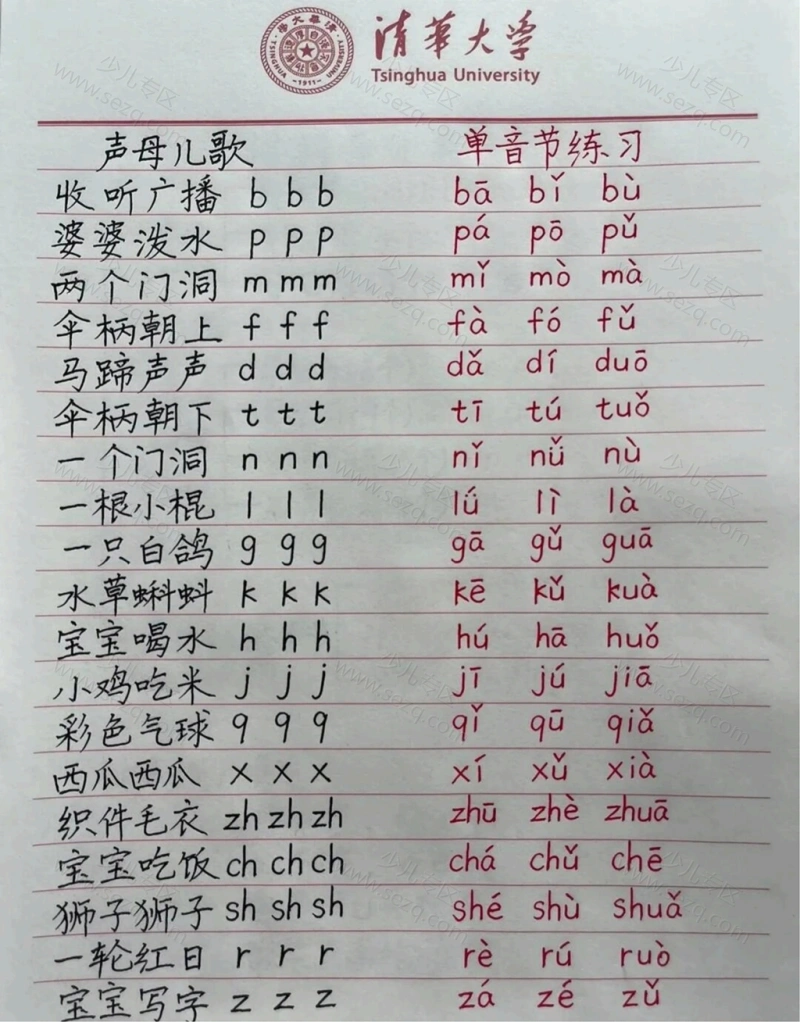 清華大学
Tsinghua University
TSINGHUA UNIVERSITY
1911
声母儿歌 单音节练习
收听广播 b b b bā bǐ bù
婆婆泼水 p p p pá pō pǔ
两个门洞 m m m mǐ mò mà
伞柄朝上 f f f fà fó fǔ
马蹄声声 d d d dǎ dí duō
伞柄朝下 t t t tī tú tuǒ
一个门洞 n n n nǐ nǚ nù
一根小棍 l l l lǘ lì là
一只白鸽 g g g gā gǔ guā
水草蝌蚪 k k k kē kǔ kuà
宝宝喝水 h h h hú hā huǒ
小鸡吃米 j j j jī jú jiā
彩色气球 q q q qǐ qū qiǎ
西瓜西瓜 x x x xí xǔ xià
织件毛衣 zh zh zh zhū zhè zhuā
宝宝吃饭 ch ch ch chá chǔ chē
狮子狮子 sh sh sh shé shù shuǎ
一轮红日 r r r rè rú ruò
宝宝写字 z z z zá zé zǔ
少儿专区
www.sezq.com